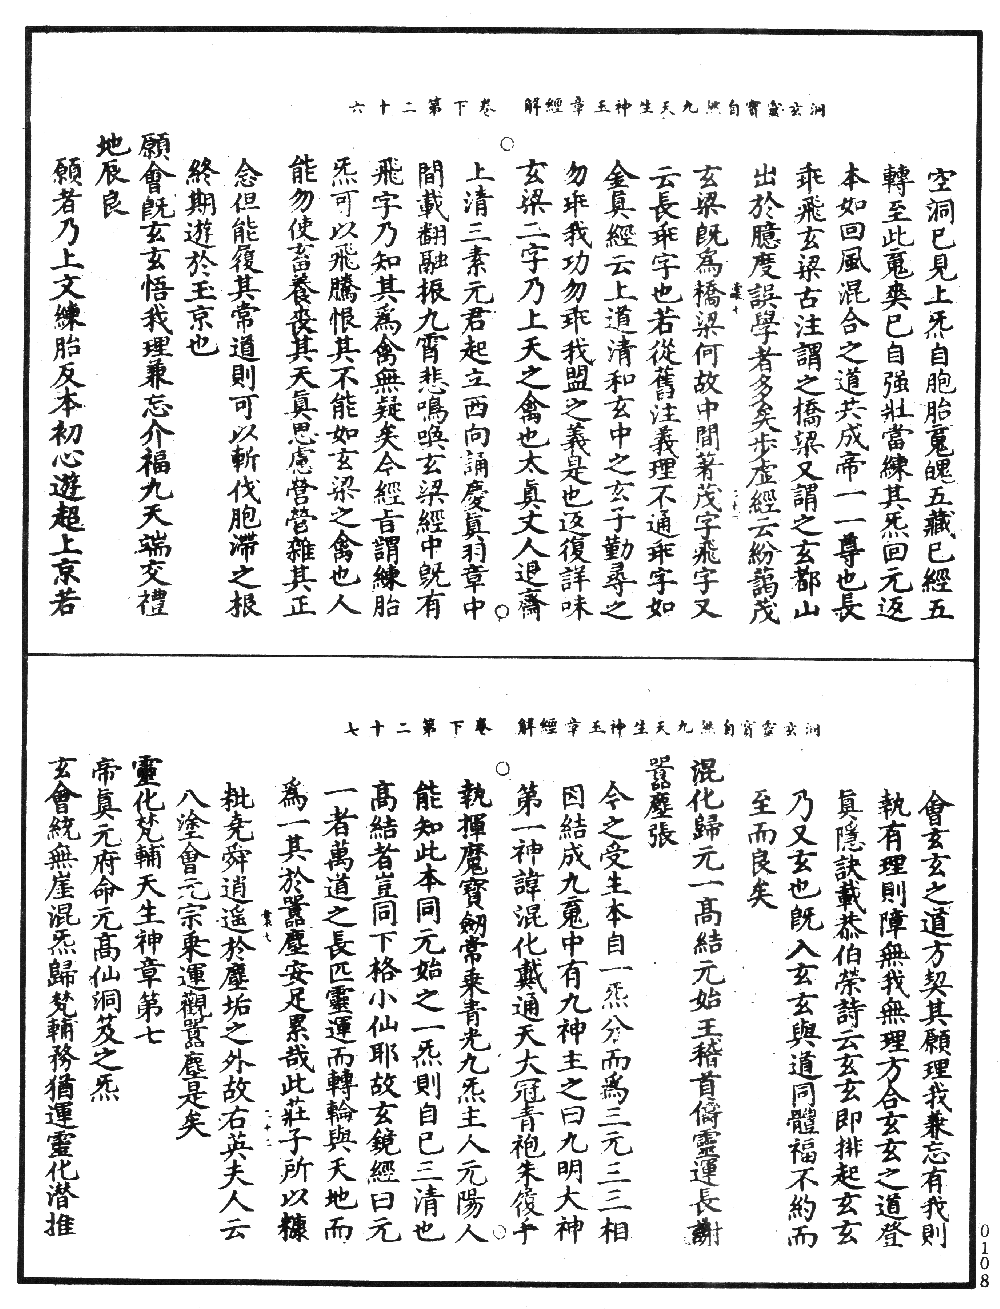 洞玄靈寳自然九天生神玉章經解　卷下第二十六
空洞已見上炁自胞胎䰟魄五藏已經五
轉至此䰟爽已自强壯當練其炁回元返
本如回風混合之道共成帝一一尊也長
乖飛玄梁古注謂之橋梁又謂之玄都山
出於臆度誤學者多矣步虛經云紛藹茂
玄梁旣爲橋梁何故中間著茂字飛字又
云長乖字也若從舊注義理不通乖字如
金眞經云上道清和玄中之玄子勤尋之
勿乖我功勿乖我盟之義是也返復詳味
玄梁二字乃上天之禽也太眞丈人退齋
上清三素元君起立西向誦慶眞羽章中
間載翻融振九霄悲鳴喚玄梁經中旣有
飛字乃知其爲禽無疑矣今經旨謂練胎
炁可以飛騰恨其不能如玄梁之禽也人
能勿使畜養喪其天眞思慮營營雜其正
念但能復其常道則可以斬伐胞滯之根
終期遊於玉京也
願會旣玄玄悟我理兼忘介福九天端交禮
地辰良
願者乃上文練胎反本初心遊超上京若
洞玄靈寳自然九天生神玉章經解　卷下第二十七
會玄玄之道方契其願理我兼忘有我則
執有理則障無我無理方合玄玄之道登
眞隱訣載恭伯榮詩云玄玄即排起玄玄
乃又玄也旣入玄玄與道同體福不約而
至而良矣
混化歸元一高結元始王稽首儔靈運長謝
囂塵張
今之受生本自一炁分而爲三元三三相
因結成九䰟中有九神主之曰九明大神
第一神諱混化戴通天大冠青袍朱履手
執揮魔寳劒常乘青光九炁主人元陽人
能知此本同元始之一炁則自已三清也
高結者豈同下格小仙耶故玄鏡經曰元
一者萬道之長匹靈運而轉輪與天地而
爲一其於囂塵安足累哉此莊子所以糠
粃堯舜逍遥於塵垢之外故右英夫人云
八塗會元宗乘運觀囂塵是矣
靈化梵輔天生神章第七
帝眞元府命元高仙洞笈之炁
玄會統無崖混炁歸梵輔務猶運靈化潜推
0108